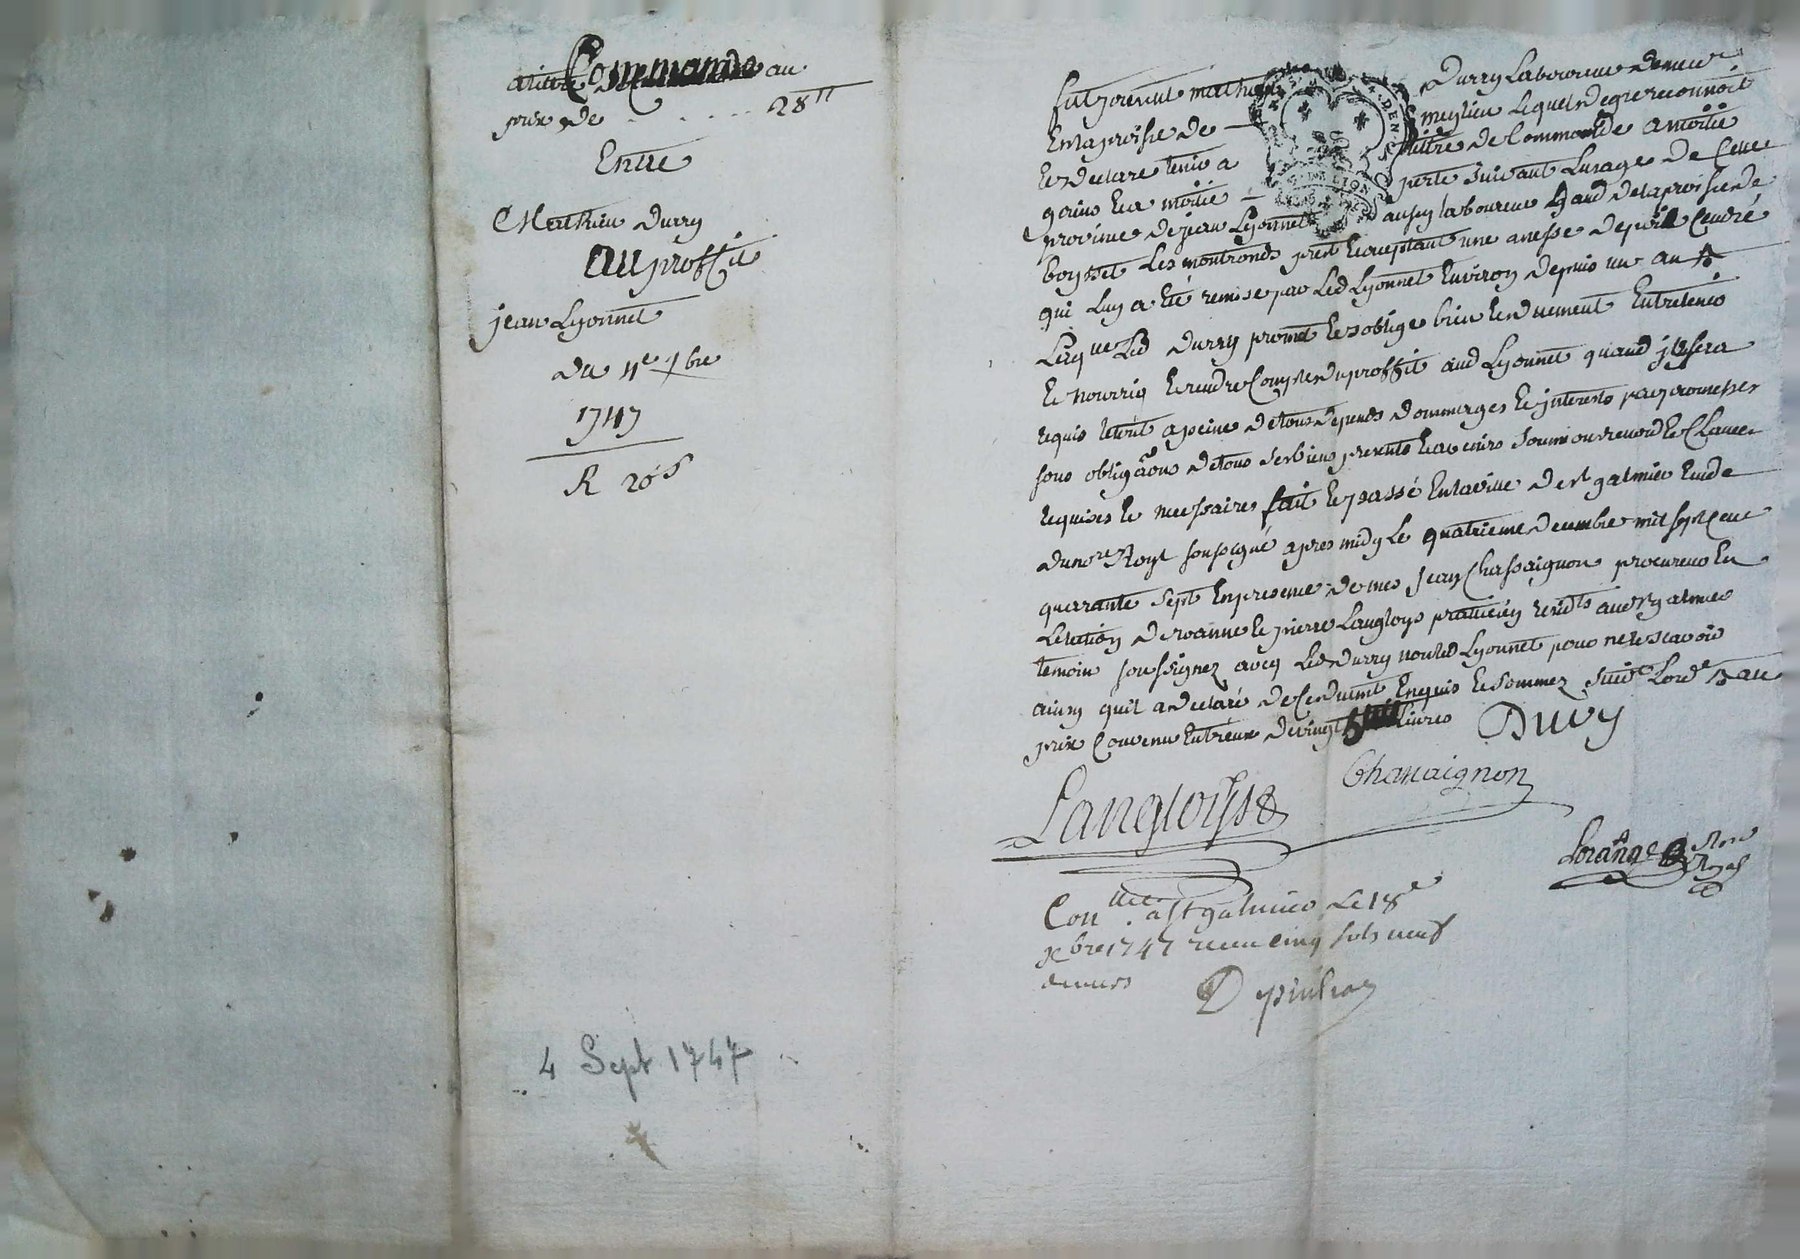 Commande au
prix de . . . . . 28ᵗᵗ
Entre
Mathieu Durry
au proffit
jean Lyonnet
du 4e xbre
1747
R 20s
4 Sept 1747
fut present mathieu Durry Laboureur demeurt
En la proisse de meylieu Lequel de gre reconnoit
Et declare tenir a tiltre de Commande a moitié
croins Et a moitié perte suivant Lusage de Cette
province de jean Lyonnet aussy laboureur Gand de la proisse de
boysset Les montronds prest Et aceptant une anesse de poil Cendré
qui Luy a Eté remise par Led Lyonnet Environ depuis un an
Leque Led Durry promet Et soblige bien Et duement Entretenir
Et nourrir Et rendre Compte du proffit aud Lyonnet quand jl sera
requis Le tout a peine de tous depends dommages Et jnterests par promesses
sous obligaons de tous ses biens presents Et avenirs soumions renond Et Clauses
requises Et necessaires fait Et passé En la ville de st galmier Etude
du nore Royl soussigné apres midy Le quatrieme decembre mil sept Cent
quarante sept En presence de mes Jean Chassaignon procureur En
Lelection de roanne Et pierre Langloys praticien residts aud st galmier
temoin soussignez avec Led Durry non led Lyonnet pour ne le scavoir
ainsy quil a declaré de Ce duemt Enquis Et sommez suivt Lorde
prix Convenu Entreux de vingt huit Livres
Durry
Langloysse
Chassaignon
Lorange Nore Royal
Conllé a st galmier Le 18e
xbre 1747 recu cinq sols neuf
deniers